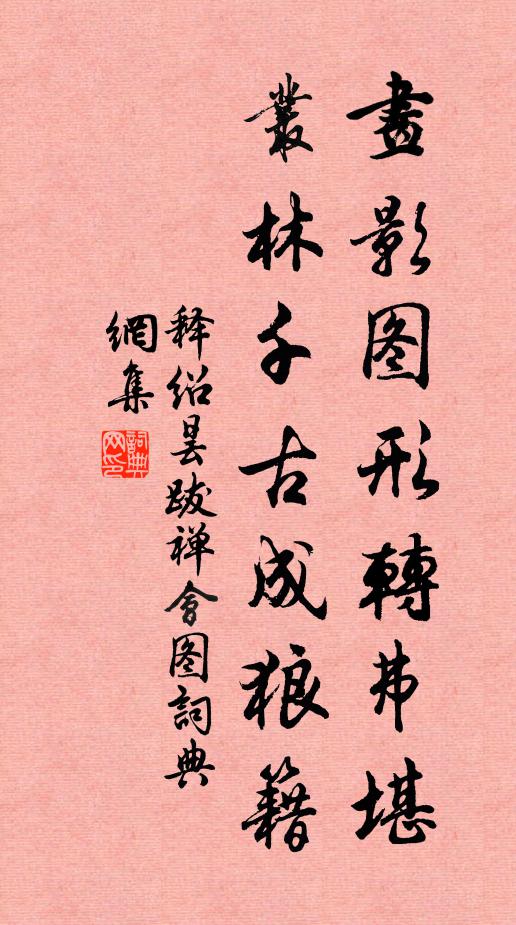 畫影图形轉弗堪
叢林千古成狼籍
释绍昙跋禅會图詞典
網集
詞典網印